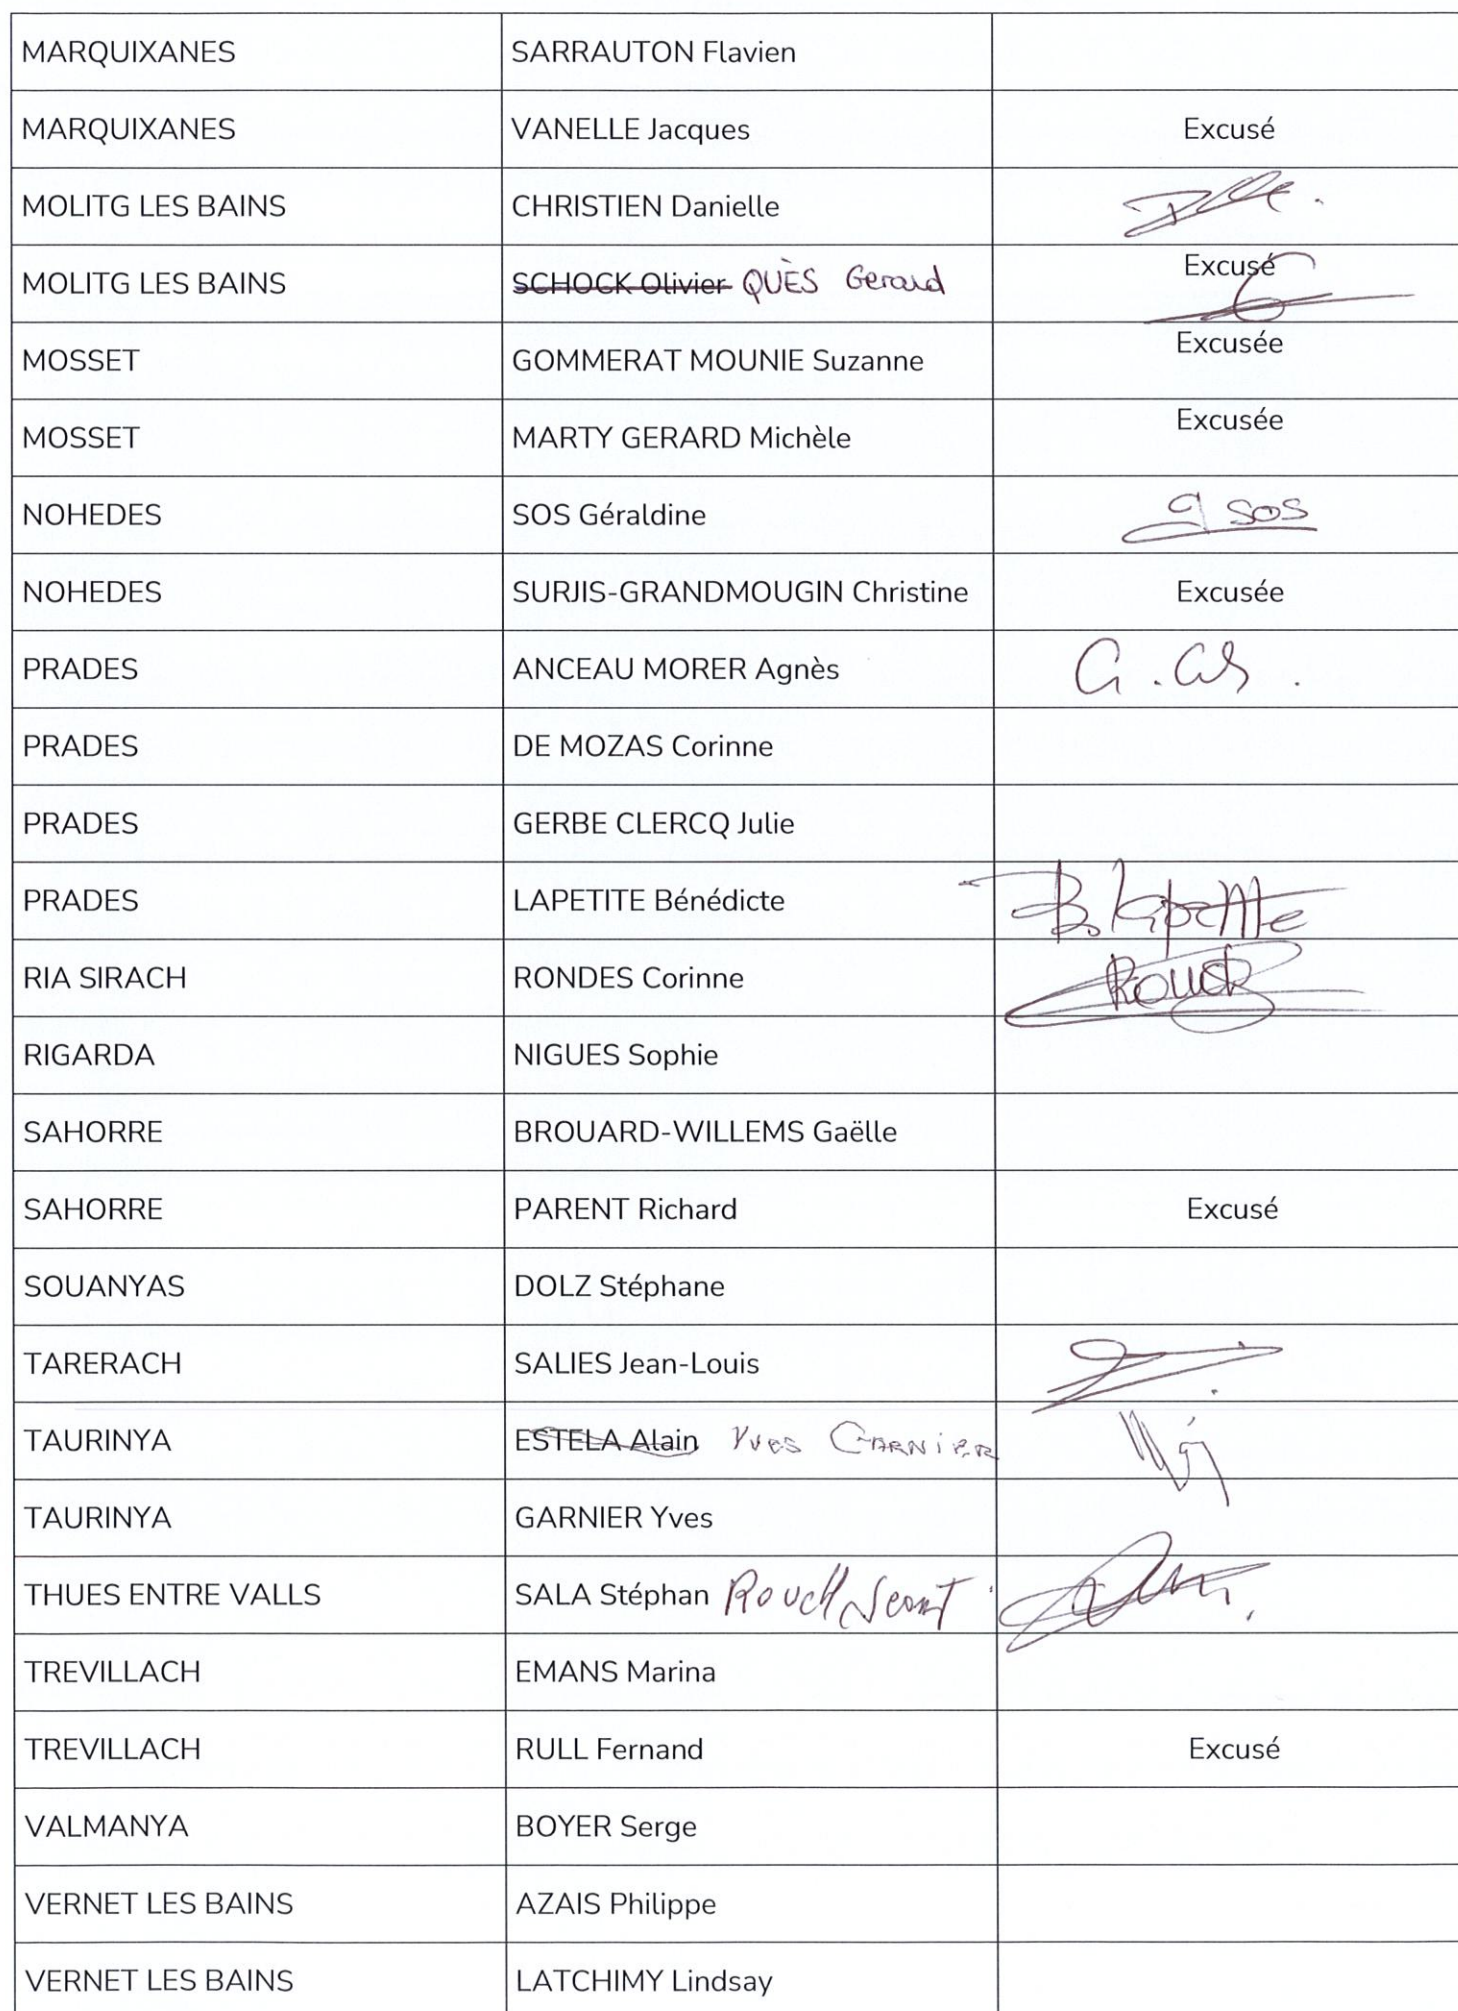 MARQUIXANES SARRAUTON Flavien
MARQUIXANES VANELLE Jacques Excusé
MOLITG LES BAINS CHRISTIEN Danielle
MOLITG LES BAINS SCHOCK Olivier QUÈS Gerard Excusé
MOSSET GOMMERAT MOUNIE Suzanne Excusée
MOSSET MARTY GERARD Michèle Excusée
NOHEDES SOS Géraldine g sos
NOHEDES SURJIS-GRANDMOUGIN Christine Excusée
PRADES ANCEAU MORER Agnès
PRADES DE MOZAS Corinne
PRADES GERBE CLERCQ Julie
PRADES LAPETITE Bénédicte B. Lapetite
RIA SIRACH RONDES Corinne
RIGARDA NIGUES Sophie
SAHORRE BROUARD-WILLEMS Gaëlle
SAHORRE PARENT Richard Excusé
SOUANYAS DOLZ Stéphane
TARERACH SALIES Jean-Louis
TAURINYA ESTELA Alain Yves GARNIER
TAURINYA GARNIER Yves
THUES ENTRE VALLS SALA Stéphan Rouch
TREVILLACH EMANS Marina
TREVILLACH RULL Fernand Excusé
VALMANYA BOYER Serge
VERNET LES BAINS AZAIS Philippe
VERNET LES BAINS LATCHIMY Lindsay